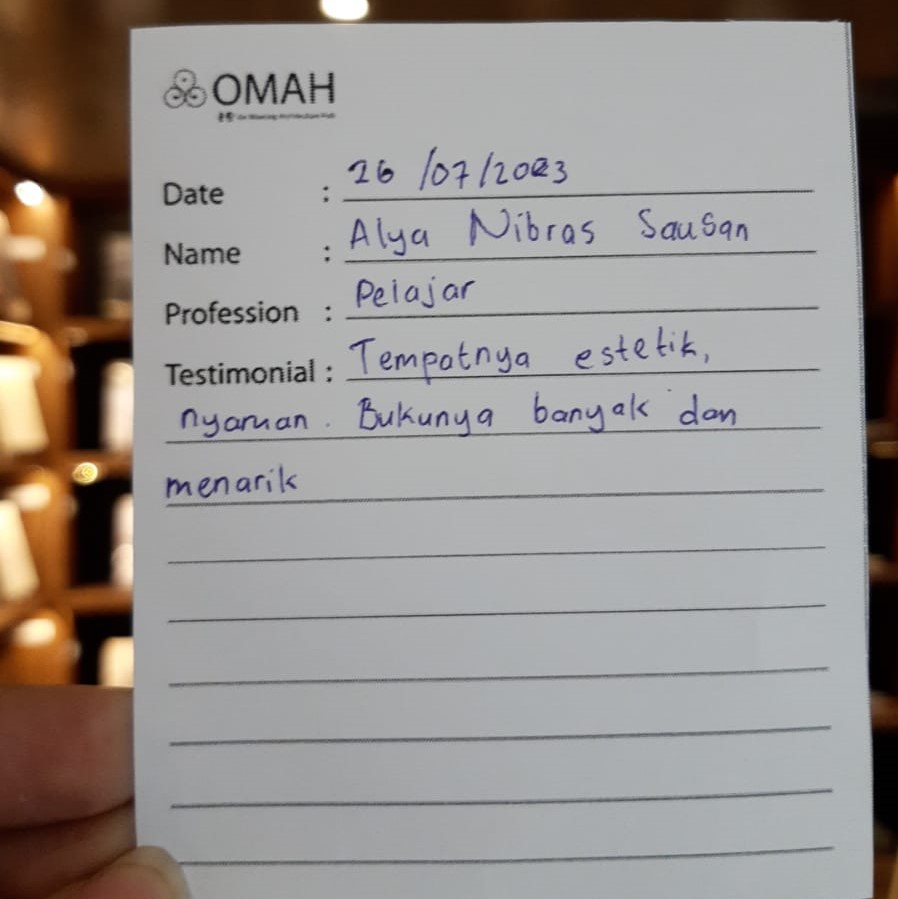 OMAH
Date : 26 /07/2023
Name : Alya Nibras Sausan
Profession : Pelajar
Testimonial : Tempatnya estetik,
nyaman. Bukunya banyak dan
menarik